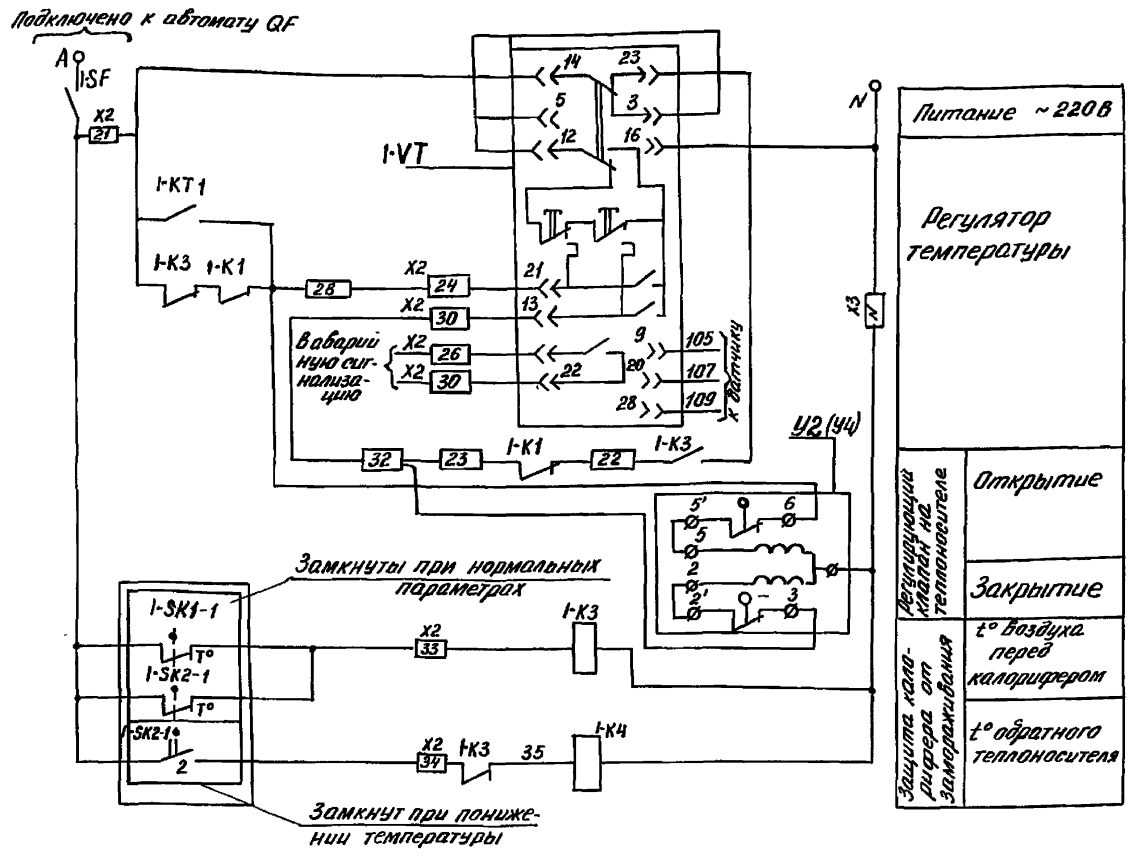 Подключено к автомату QF
A
1-SF
X2
21
1-KT1
1-K3
1-K1
28
X2
24
X2
30
В аварий
ную сиг-
нализа-
цию
X2
26
X2
30
1-VT
14
5
12
23
3
16
21
13
22
9
20
28
105
107
109
к датчику
32
23
1-K1
22
1-K3
У2(У4)
5'
6
5
2
2'
3
N
X3
N
Замкнуты при нормальных
параметрах
1-SK1-1
T°
1-SK2-1
T°
1-SK2-1
2
X2
33
1-K3
X2
34
1-K3
35
1-K4
Замкнут при пониже-
нии температуры
Питание ~220В
Регулятор
температуры
Регулирующий
клапан на
теплоносителе
Открытие
Закрытие
Защита кало-
рифера от
замораживания
t° воздуха
перед
калорифером
t° обратного
теплоносителя